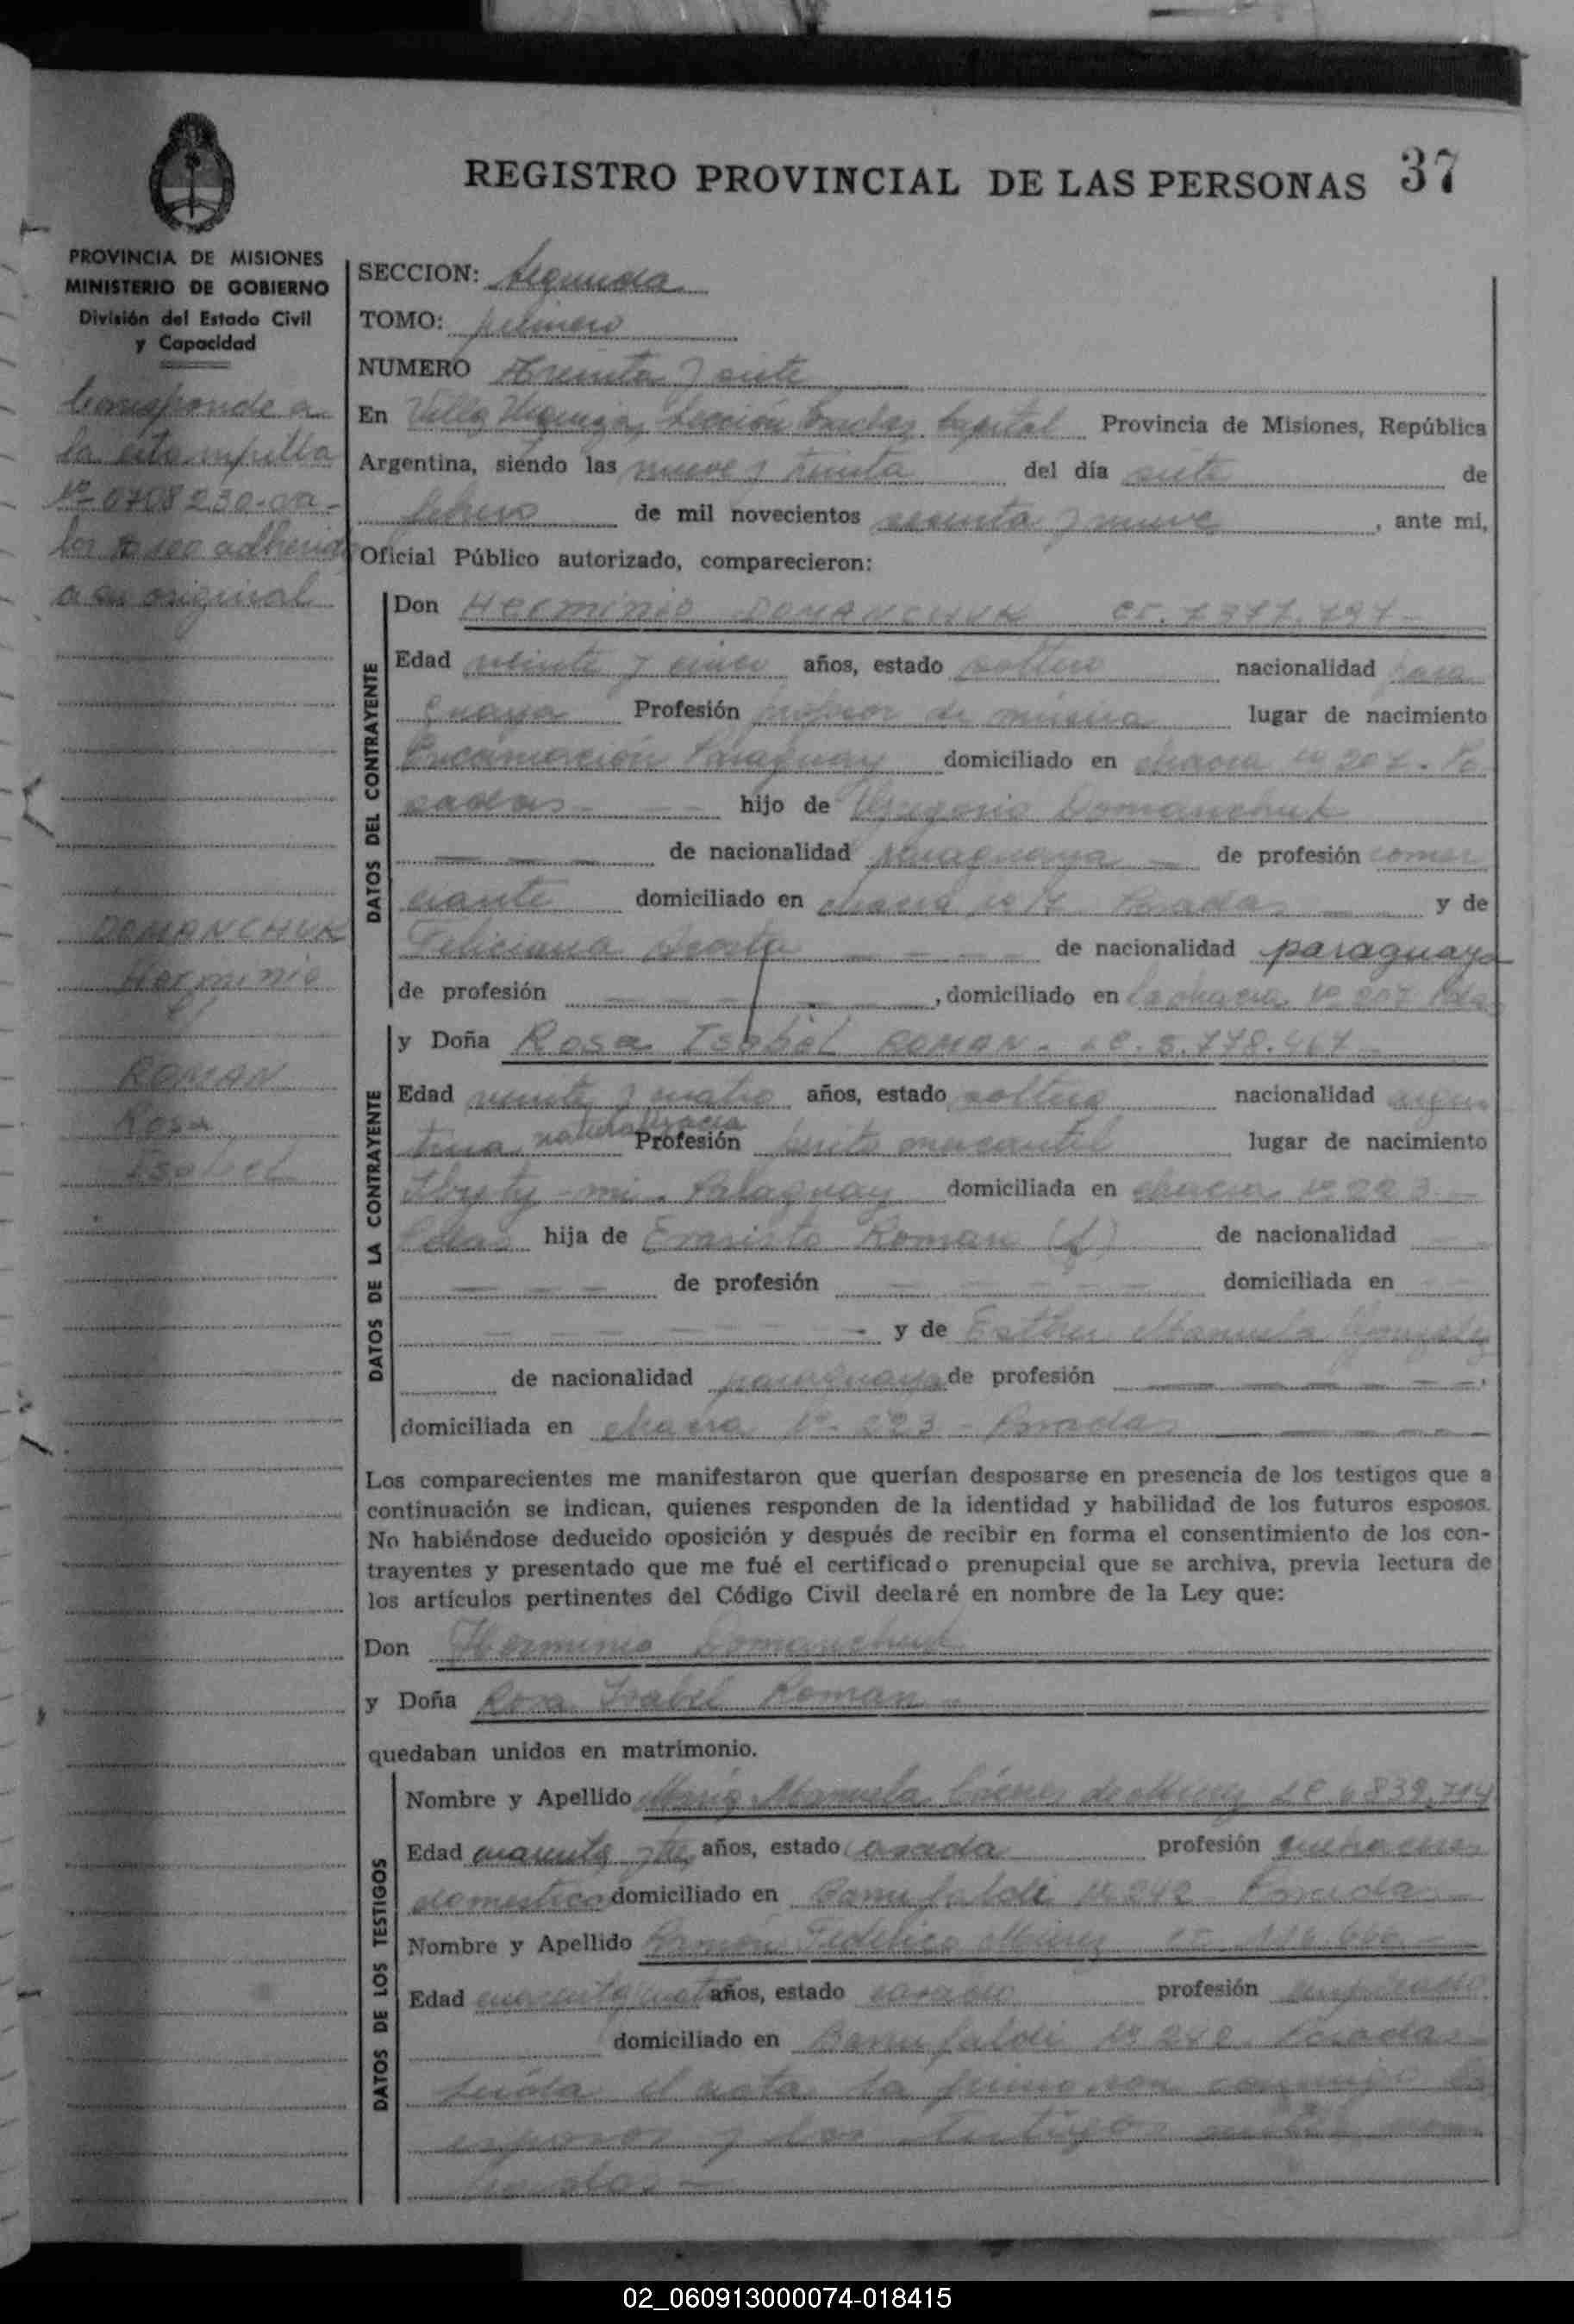 REGISTRO PROVINCIAL DE LAS PERSONAS 37
PROVINCIA DE MISIONES
MINISTERIO DE GOBIERNO
División del Estado Civil
y Capacidad
Corresponde a
la estampilla
Nº 0708230 - va-
lor $ 100 adherida
a su original
DOMANCHUK
Herminio
ROMAN
Rosa
Isabel
SECCION: Segunda
TOMO: primero
NUMERO Treinta y siete
En Villa Urquiza, Sección Capital Provincia de Misiones, República
Argentina, siendo las nueve y treinta del día siete de
febrero de mil novecientos sesenta y nueve, ante mi,
Oficial Público autorizado, comparecieron:
DATOS DEL CONTRAYENTE
Don Herminio DOMANCHUK CI. 7.377.797-
Edad veinte y cinco años, estado soltero nacionalidad para
guaya Profesión profesor de música lugar de nacimiento
Encarnación Paraguay domiciliado en chacra Nº 207 - Po
sadas - - - hijo de Gregorio Domanchuk
- - - de nacionalidad paraguaya - de profesión comer
ciante domiciliado en chacra Posadas y de
Feliciana Acosta - - - - de nacionalidad paraguaya
de profesión - - - - , domiciliado en la chacra Nº 207 Pdas
DATOS DE LA CONTRAYENTE
y Doña Rosa Isabel ROMAN - LC. 5.778.467 -
Edad veinte y cuatro años, estado soltera nacionalidad argen
tina naturalizada Profesión perito mercantil lugar de nacimiento
Paraguay domiciliada en chacra Nº 223 -
Pdas hija de Evaristo Roman (f) de nacionalidad
- - - de profesión - - - - - domiciliada en
- - - - - - - y de Esther Manuela Gonzalez
de nacionalidad paraguaya de profesión - - - - -,
domiciliada en chacra Nº 223 - Posadas - - - -
Los comparecientes me manifestaron que querían desposarse en presencia de los testigos que a
continuación se indican, quienes responden de la identidad y habilidad de los futuros esposos.
No habiéndose deducido oposición y después de recibir en forma el consentimiento de los con-
trayentes y presentado que me fué el certificado prenupcial que se archiva, previa lectura de
los artículos pertinentes del Código Civil declaré en nombre de la Ley que:
Don Herminio Domanchuk
y Doña Rosa Isabel Roman -
quedaban unidos en matrimonio.
DATOS DE LOS TESTIGOS
Nombre y Apellido Manuela de LC 6839.714
Edad cuarenta y años, estado casada profesión quehaceres
domesticos domiciliado en Nº 242 Posadas -
Nombre y Apellido Ramón Federico CI 126.666 -
Edad cuarenta años, estado casado profesión empleado
domiciliado en Nº 242 Posadas
Leída el acta la firmaron conmigo los
esposos y los testigos antes nom
brados -
02_060913000074-018415